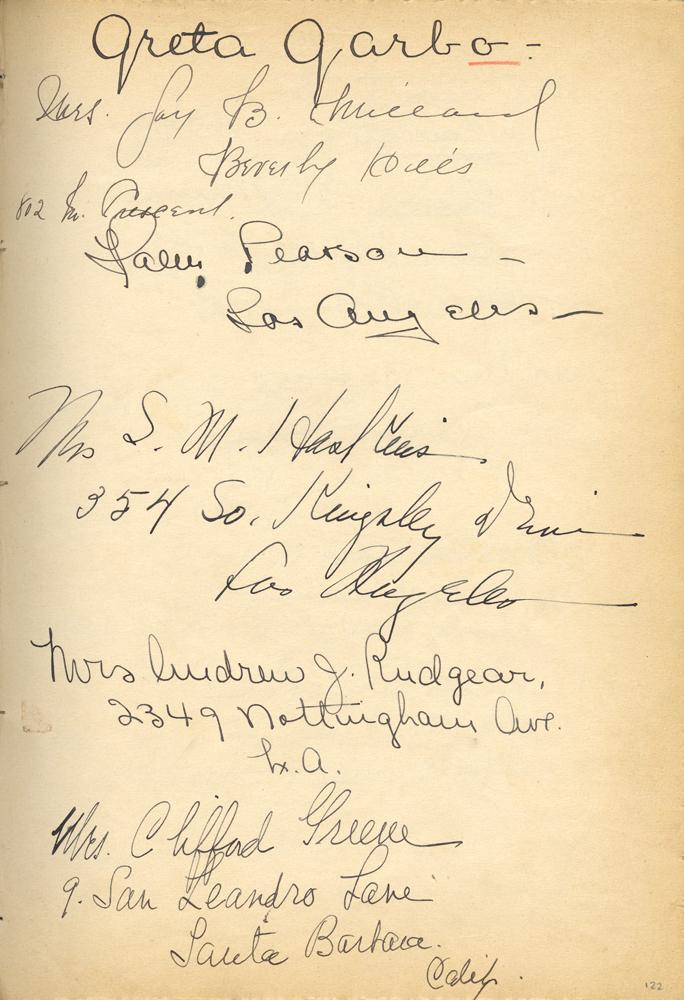 Greta Garbo -
Mrs. Jay B. Millard
Beverly Hills
802 N. Crescent.
Pearson -
Los Angeles -
Mrs S. M. Haskins
354 So. Kingsley Drive
Los Angeles
Mrs Andrew J. Rudgear,
2349 Nottingham Ave.
L.A.
Mrs. Clifford Greene
9. San Leandro Lane
Santa Barbara.
Calif.
122